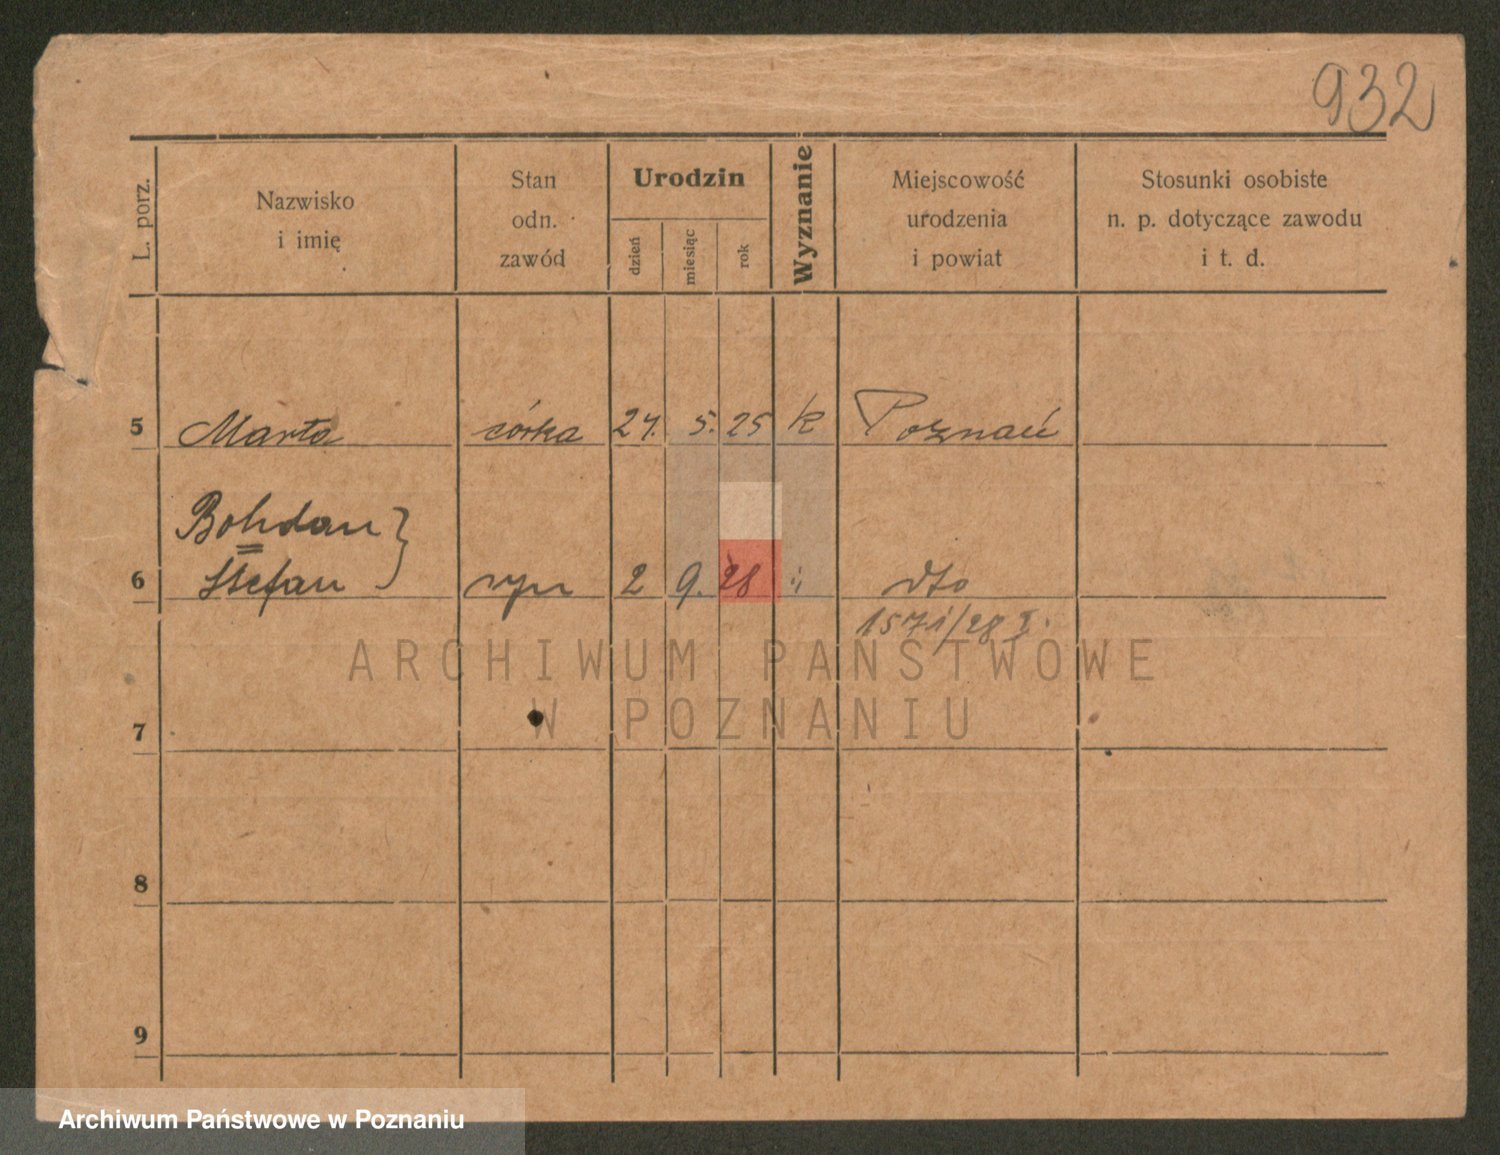 932
L. porz.
Nazwisko
i imię
Stan
odn.
zawód
Urodzin
dzień
miesiąc
rok
Wyznanie
Miejscowość
urodzenia
i powiat
Stosunki osobiste
n. p. dotyczące zawodu
i t. d.
5 Marta córka 24. 5. 25 k Poznań
Bohdan }
6 Stefan syn 2 9. 28 " dto
1571/28 I.
ARCHIWUM PAŃSTWOWE
W POZNANIU
7
8
9
Archiwum Państwowe w Poznaniu